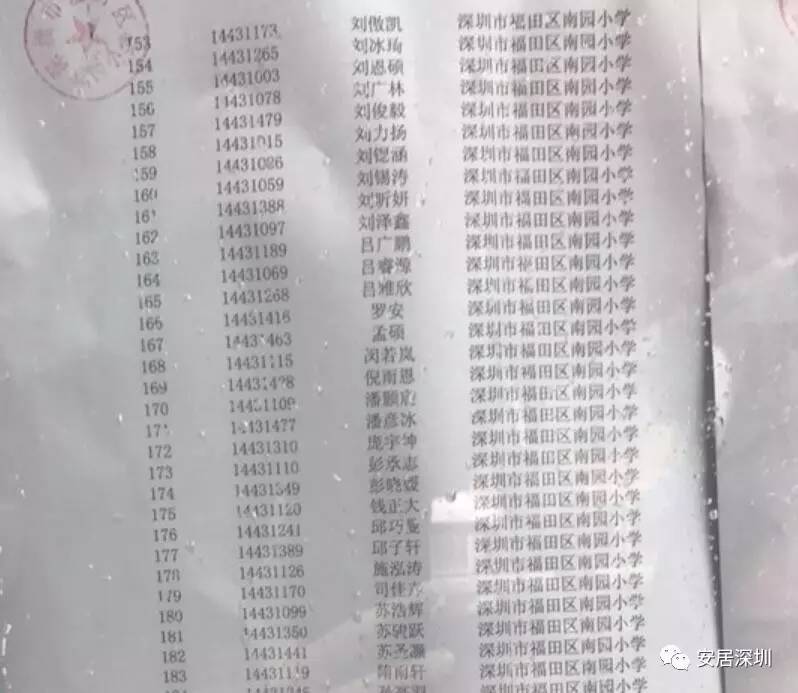 153 14431173 刘傲凯 深圳市福田区南园小学
154 14431265 刘冰玚 深圳市福田区南园小学
155 14431003 刘恩硕 深圳市福田区南园小学
156 14431078 刘广林 深圳市福田区南园小学
157 14431479 刘俊毅 深圳市福田区南园小学
158 14431015 刘力扬 深圳市福田区南园小学
159 14431026 深圳市福田区南园小学
160 14431059 刘锡涛 深圳市福田区南园小学
161 14431388 刘昕妍 深圳市福田区南园小学
162 14431097 刘泽鑫 深圳市福田区南园小学
163 14431189 吕广鹏 深圳市福田区南园小学
164 14431069 吕睿源 深圳市福田区南园小学
165 14431268 吕雅欣 深圳市福田区南园小学
166 14431416 罗安 深圳市福田区南园小学
167 14431463 孟硕 深圳市福田区南园小学
168 14431115 闵若岚 深圳市福田区南园小学
169 倪雨恩 深圳市福田区南园小学
170 14431109 深圳市福田区南园小学
171 14431477 潘彦冰 深圳市福田区南园小学
172 14431310 庞宇坤 深圳市福田区南园小学
173 14431110 彭承志 深圳市福田区南园小学
174 14431349 彭晓媛 深圳市福田区南园小学
175 14431120 钱正大 深圳市福田区南园小学
176 14431241 深圳市福田区南园小学
177 14431389 邱子轩 深圳市福田区南园小学
178 14431126 施泓涛 深圳市福田区南园小学
179 14431170 深圳市福田区南园小学
180 14431099 苏浩辉 深圳市福田区南园小学
181 14431350 苏骏跃 深圳市福田区南园小学
182 14431441 苏圣灏 深圳市福田区南园小学
183 隋雨轩 深圳市福田区南园小学
安居深圳